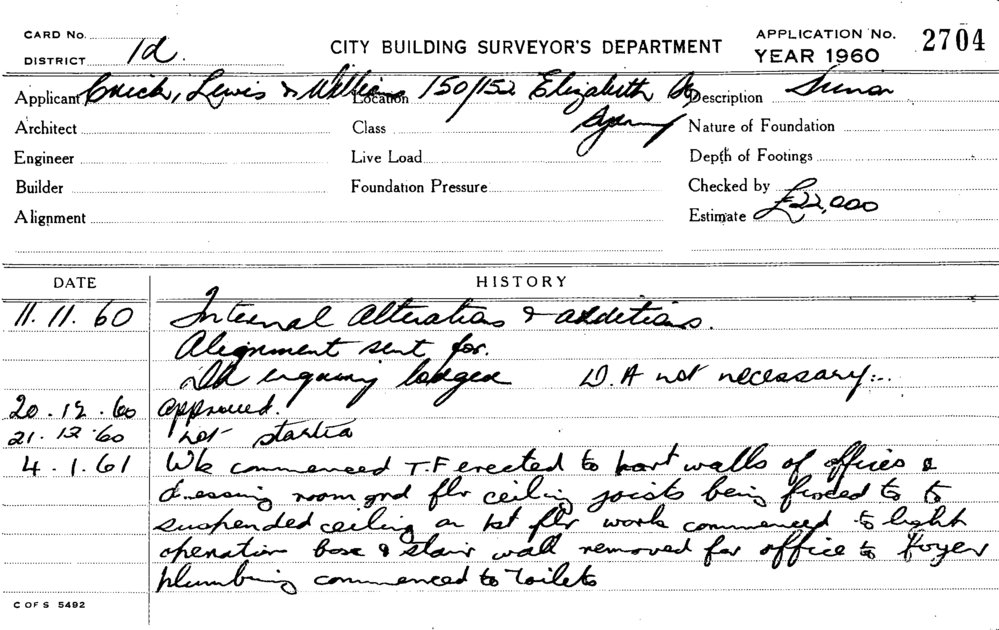 CARD No.
DISTRICT 1d.
CITY BUILDING SURVEYOR'S DEPARTMENT
APPLICATION No. 2704
YEAR 1960
Applicant Crick, Lewis & Williams Location 150/152 Elizabeth St, Description
Sydney
Architect Class Nature of Foundation
Engineer Live Load Depth of Footings
Builder Foundation Pressure Checked by
Alignment Estimate £22,000
DATE HISTORY
11.11.60 Internal alterations & additions.
Alignment sent for.
enquiry lodged D.A not necessary...
20.12.60 approved.
21.12.60 not started
4.1.61 Wk commenced T.F erected to part walls of offices &
dressing room grd flr ceiling joists being fixed to to
suspended ceiling on 1st flr work commenced to light
operation box & stair wall removed for office to foyer
plumbing commenced to toilets
C OF S 5492